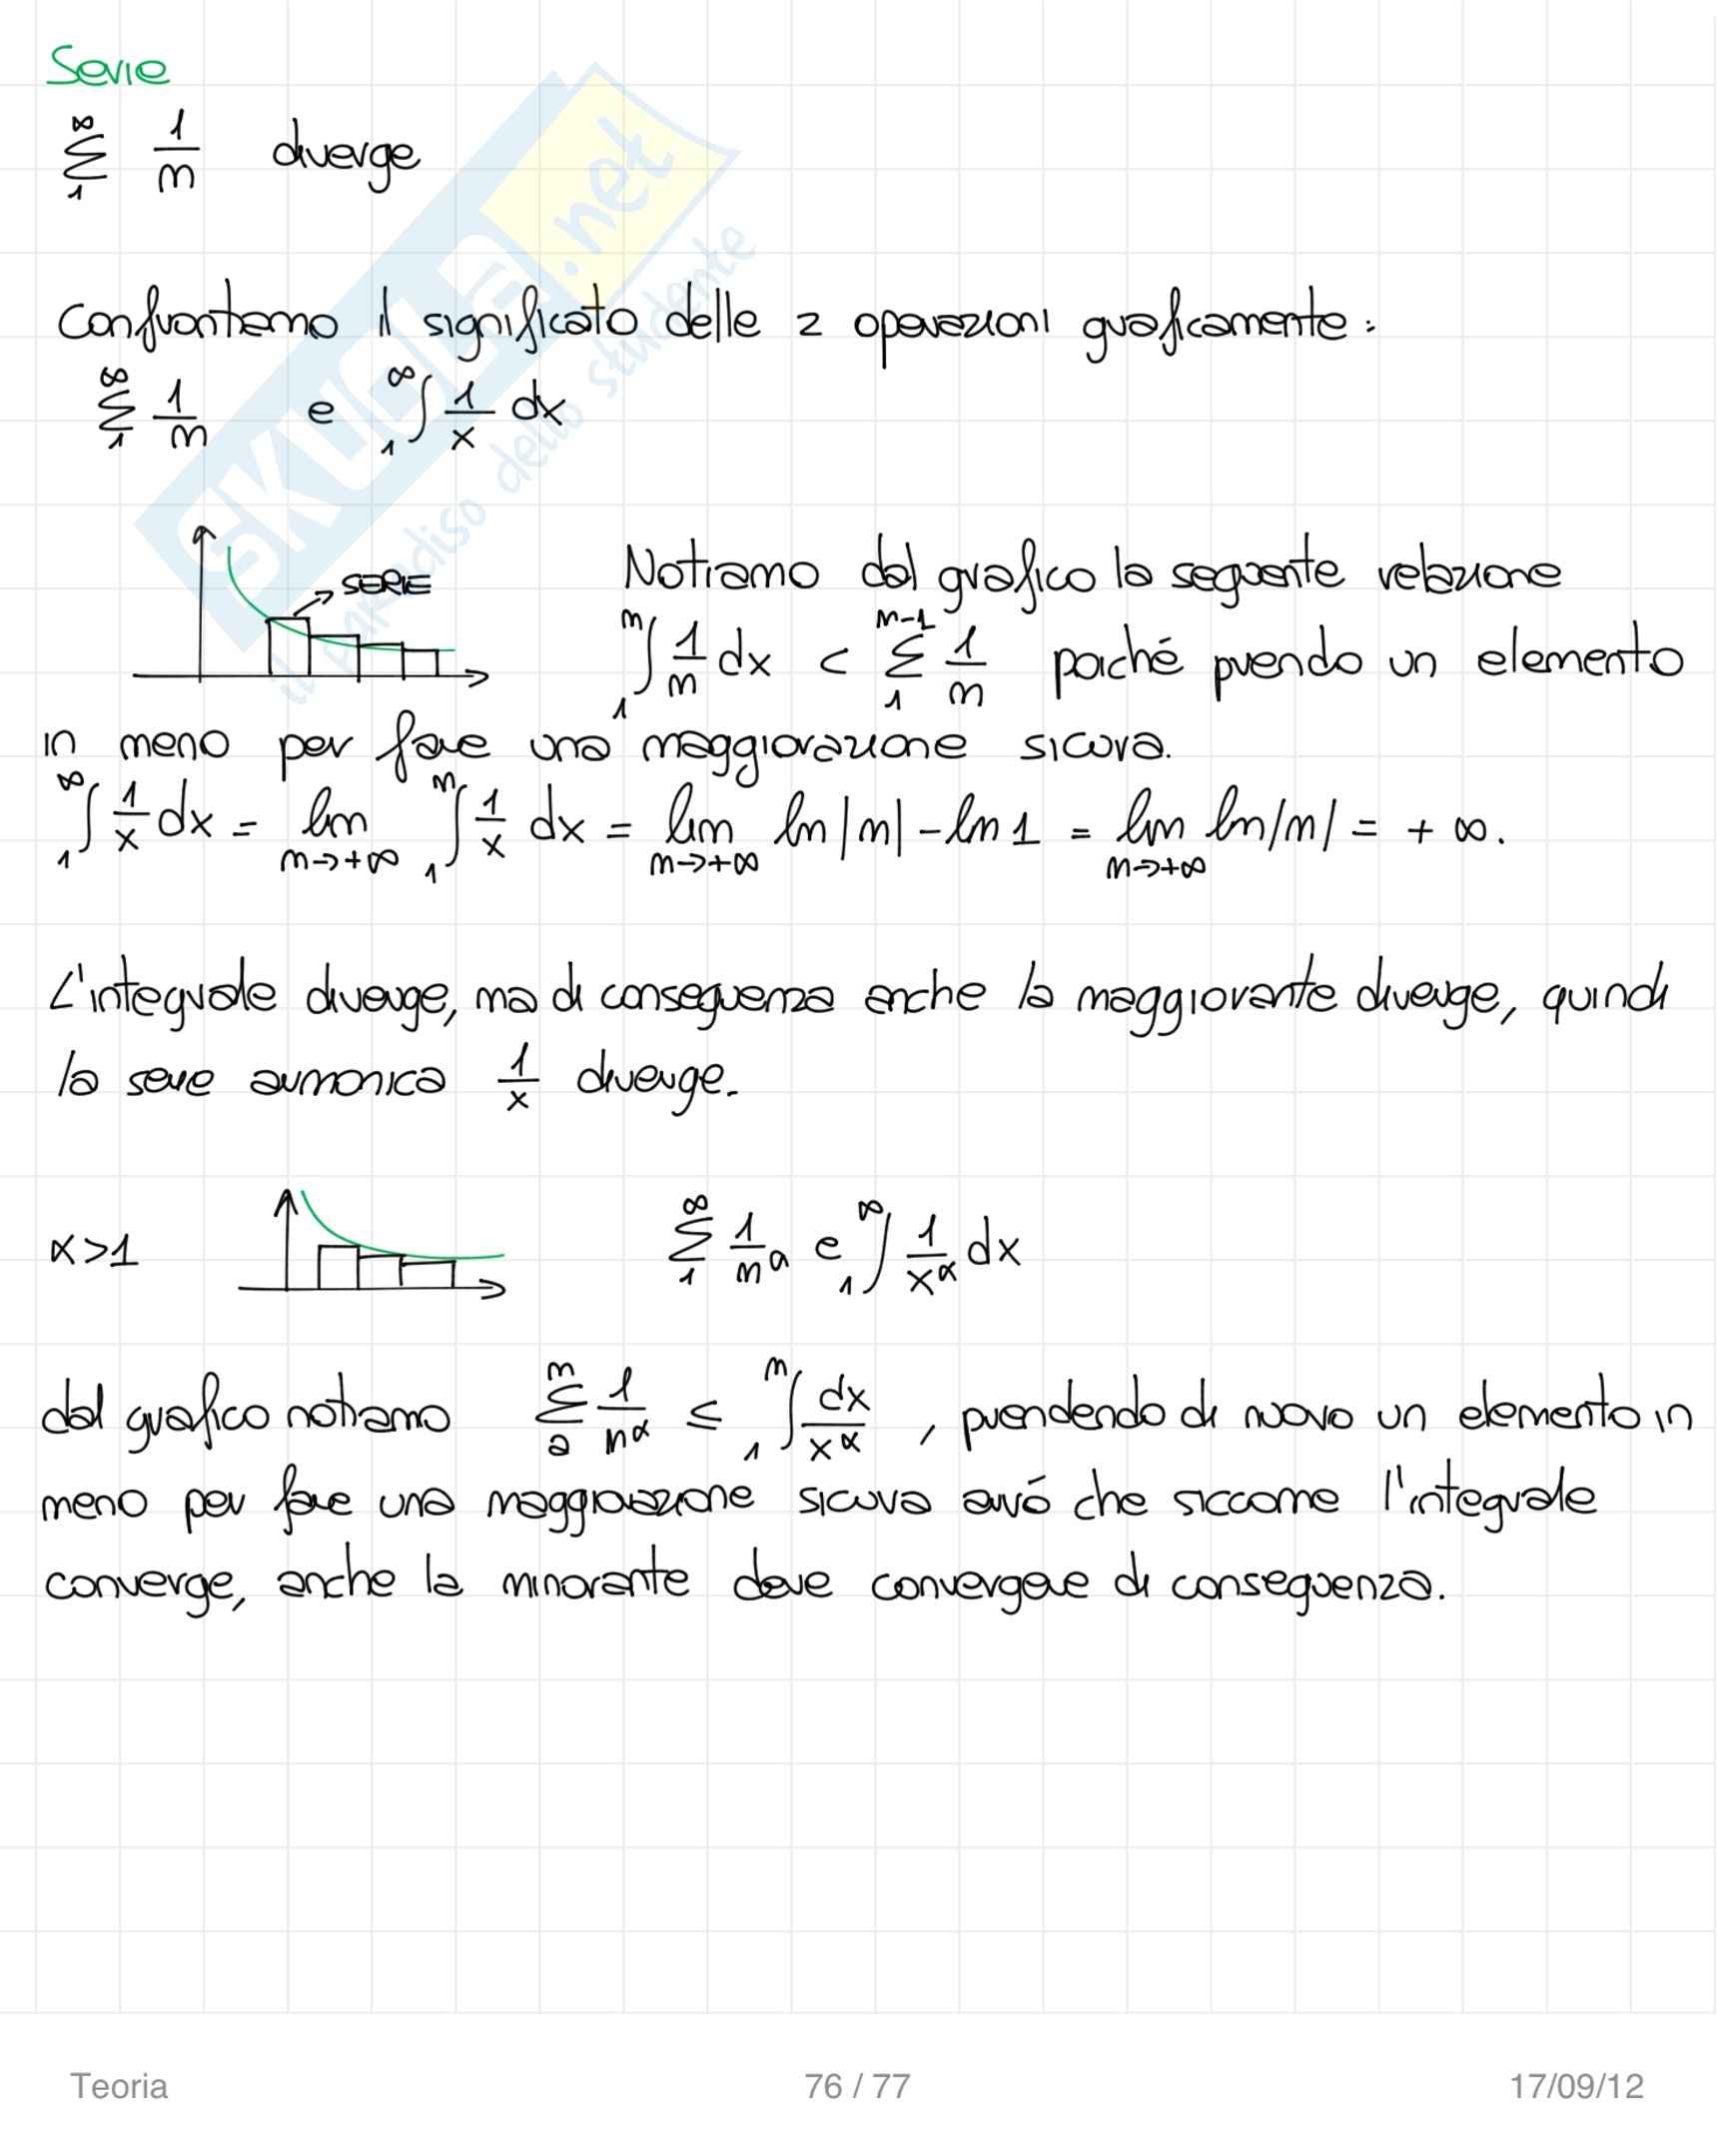 Serie
∞ ∑ 1 1/n diverge
Confrontiamo il significato delle 2 operazioni graficamente:
∞ ∑ 1 1/n e ∞ ∫ 1 1/x dx
SERIE
Notiamo dal grafico la seguente relazione
n ∫ 1 1/n dx < n-1 ∑ 1 1/n poiché prendo un elemento
in meno per fare una maggiorazione sicura.
∞ ∫ 1 1/x dx = lim n→+∞ n ∫ 1 1/x dx = lim n→+∞ ln|n| - ln 1 = lim n→+∞ ln|n| = +∞.
L'integrale diverge, ma di conseguenza anche la maggiorante diverge, quindi
la serie armonica 1/x diverge.
α>1
∞ ∑ 1 1/n^α e ∞ ∫ 1 1/x^α dx
dal grafico notiamo n ∑ 2 1/n^α ≤ n ∫ 1 dx/x^α , prendendo di nuovo un elemento in
meno per fare una maggiorazione sicura avrò che siccome l'integrale
converge, anche la minorante deve convergere di conseguenza.
SKUOLA.net
il paradiso dello studente
Teoria
76 / 77
17/09/12